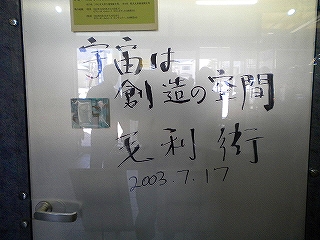 宇宙は
創造の空間
毛利衛
2003.7.17